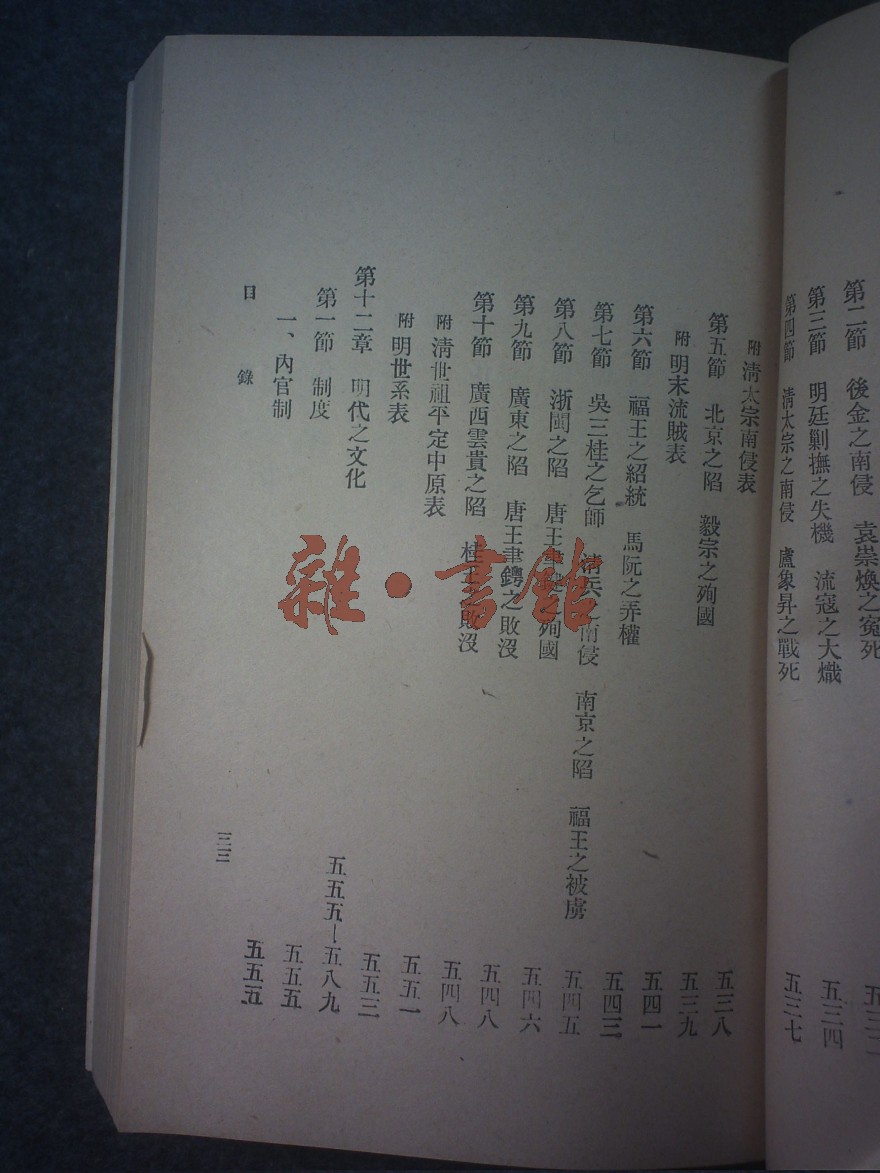 第二節 後金之南侵 袁崇煥之冤死
第三節 明廷剿撫之失機 流寇之大熾 五三四
第四節 清太宗之南侵 盧象昇之戰死 五三七
附 清太宗南侵表 五三八
第五節 北京之陷 毅宗之殉國 五三九
附 明末流賊表 五四一
第六節 福王之紹統 馬阮之弄權 五四三
第七節 吳三桂之乞師 清兵之南侵 南京之陷 福王之被虜 五四五
第八節 浙閩之陷 唐王聿 殉國 五四六
第九節 廣東之陷 唐王聿鐭之敗沒 五四八
第十節 廣西雲貴之陷 桂王 敗沒 五四八
附 清世祖平定中原表 五五一
附 明世系表 五五三
第十二章 明代之文化 五五五—五八九
第一節 制度 五五五
一、內官制 五五五
目錄
三三
雜·書館